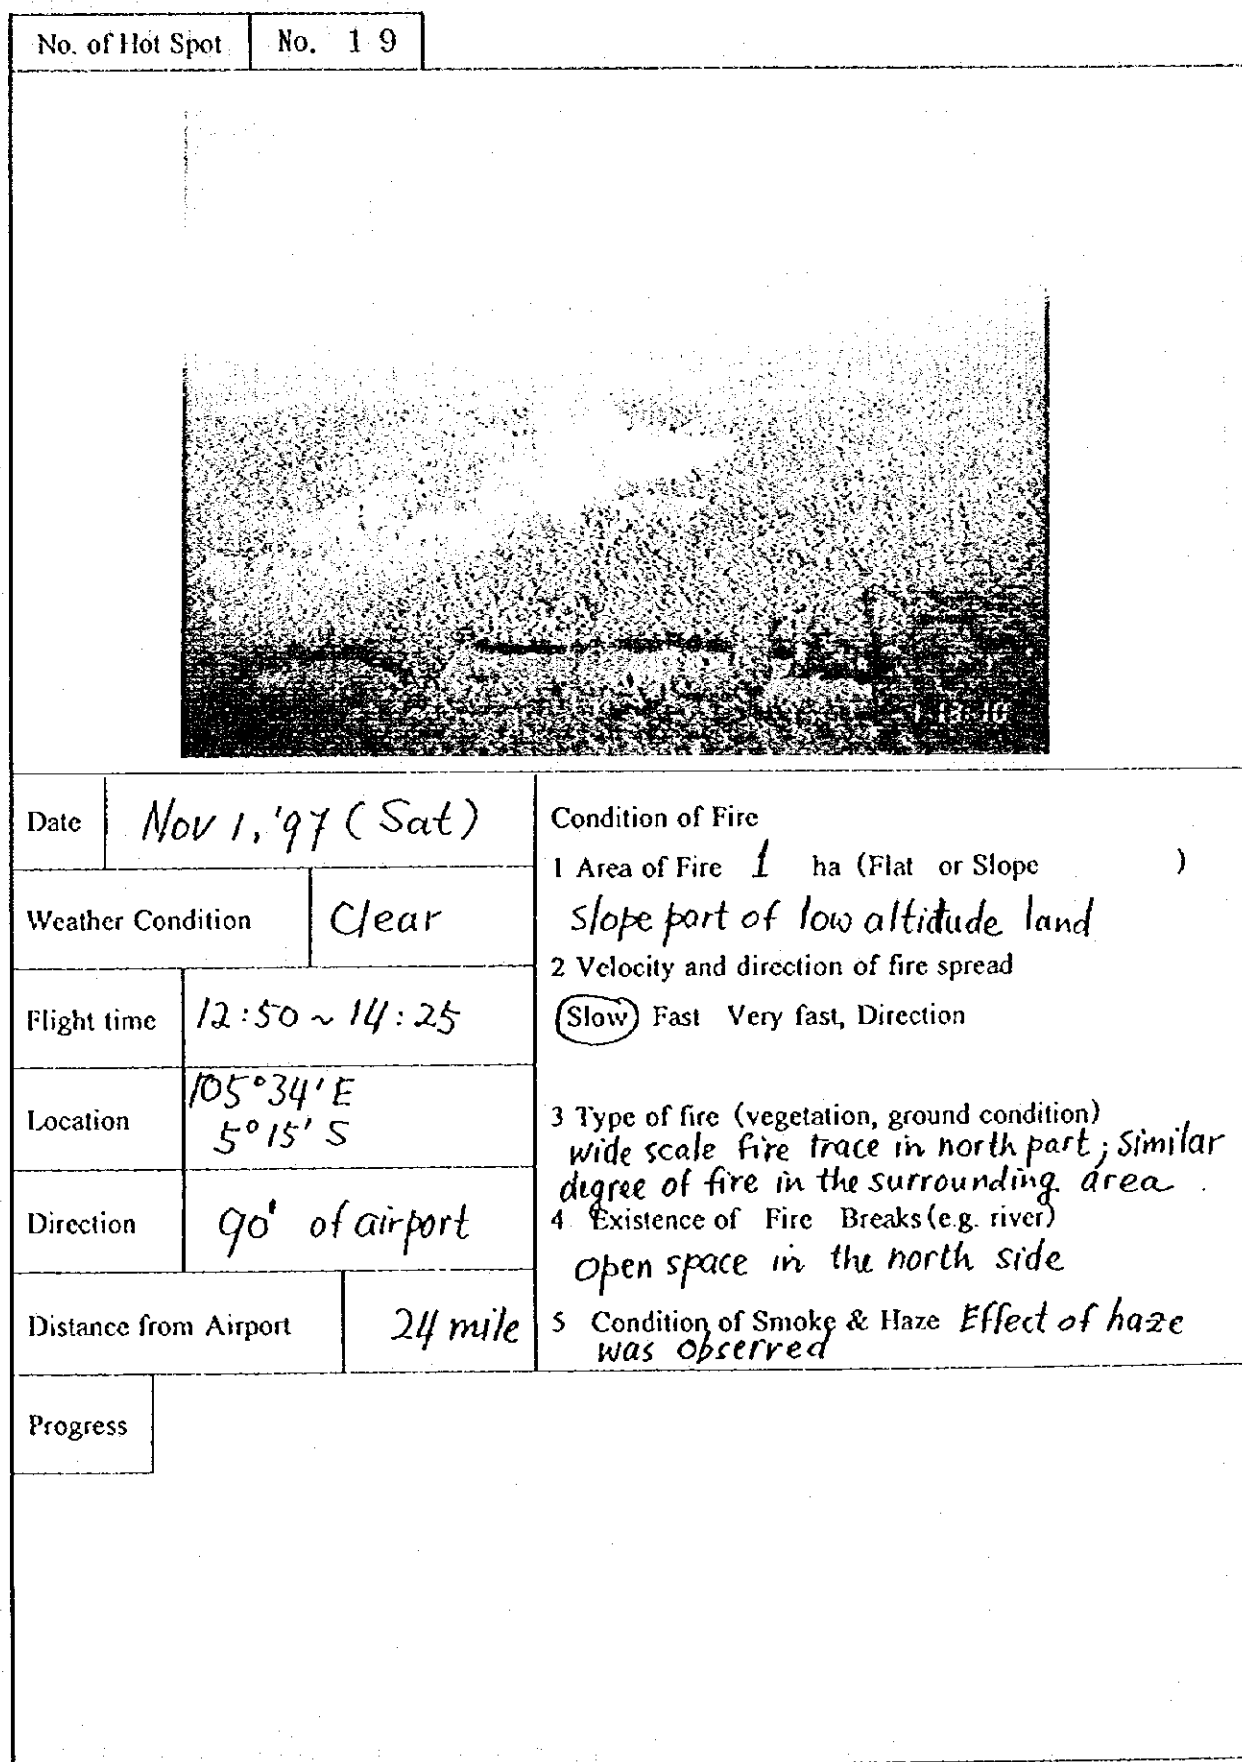 No. of Hot Spot No. 19
Date Nov 1, '97 (Sat)
Weather Condition Clear
Flight time 12:50 ~ 14:25
Location 105°34'E
5°15' S
Direction 90' of airport
Distance from Airport 24 mile
Condition of Fire
1 Area of Fire 1 ha (Flat or Slope )
slope part of low altitude land
2 Velocity and direction of fire spread
Slow Fast Very fast, Direction
3 Type of fire (vegetation, ground condition)
wide scale fire trace in north part; similar
degree of fire in the surrounding area.
4 Existence of Fire Breaks (e.g. river)
open space in the north side
5 Condition of Smoke & Haze Effect of haze
was observed
Progress